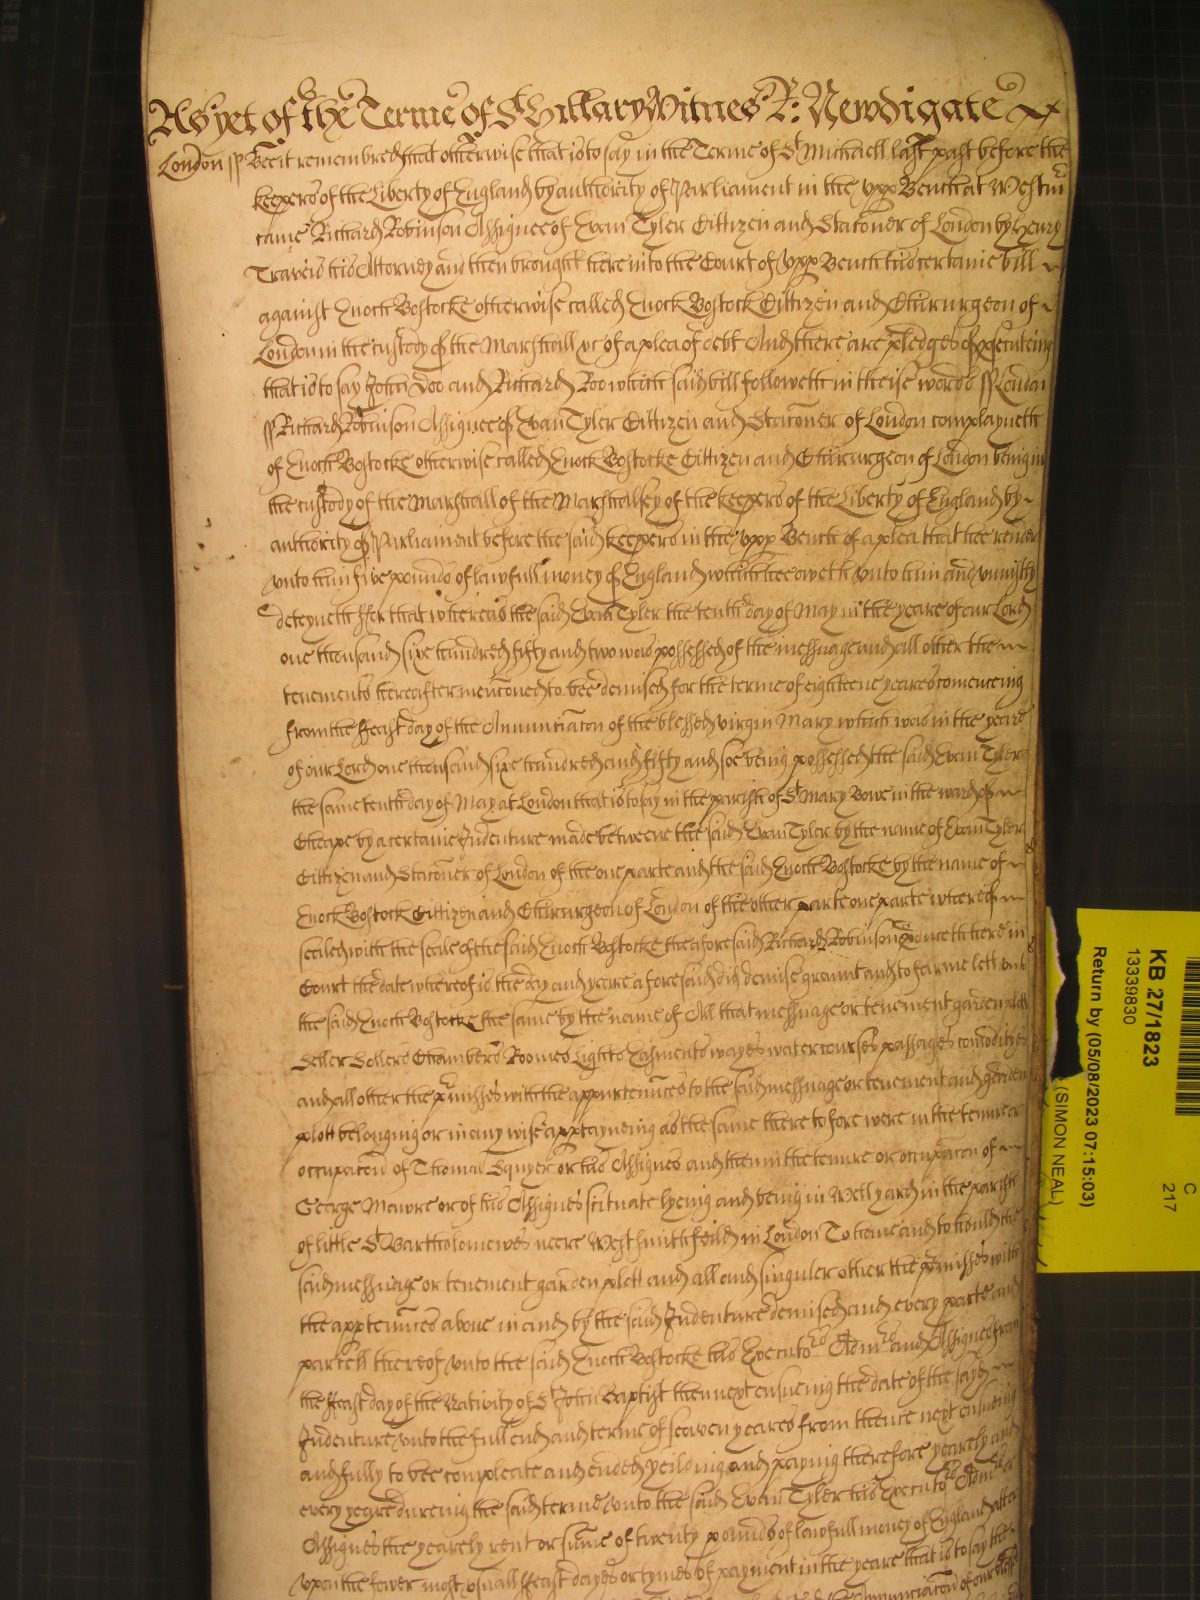 As yet of the Terme of St Hillary Witnes R: Newdigate
London ss Bee it remembred that otherwise that is to say in the Terme of St Michaell last past before the
keepers of the Liberty of England by authority of Parliament in the upp Bench at Westm
came Richard Robinson Assignee of Evan Tyler Cittizen and Staconer of London by Henry
Travers his Attorney and then brought here into the Court of upp Bench his certaine bill
against Enoch Bostocke otherwise called Enock Bostock Cittizen and Chirurgeon of
London in the custody of the Marshall &c of a plea of debt And there are pledges of psecuteing
that is to say John Doo and Richard Roo which said bill followeth in theise words ss London
ss Richard Robinson Assignee of Evan Tyler Cittizen and Staconer of London complayneth
of Enoch Bostocke otherwise called Enock Bostocke Cittizen and Chirurgeon of London being in
the custody of the Marshall of the Marshalsey of the keepers of the Liberty of England by
authority of Parliament before the said keepers in the upp Bench of a plea that hee render
unto him five pounds of lawfull money of England which hee oweth unto him and uniustly
deteyneth ffor that whereas the said Evan Tyler the tenth day of May in the yeare of our Lord
one thousand six hundred fifty and two was possessed of the messuage and all other the
tenements hereafter menconed to bee demised for the terme of eighteene yeares comenceing
from the ffeast day of the Annunciacon of the blessed virgin Mary which was in the yeare
of our Lord one thousand six hundred and fifty and soe being possessed the said Evan Tyler
the same tenth day of May at London that is to say in the parish of St Mary Bowe in the ward of
Cheape by a certaine Indenture made betweene the said Evan Tyler by the name of Evan Tyler
Cittizen and Staconer of London of the one parte and the said Enoch Bostocke by the name of
Enock Bostock Cittizen and Chirurgeon of London of the other parte one parte whereof
sealed with the seale of the said Enoch Bostocke the aforesaid Richard Robinson pduceth here in
Court the date whereof is the day and yeare aforesaid did demise graunt and to farme lett unto
the said Enoch Bostocke the same by the name of All that messuage or tenement garden plott
Seller Sollers Chambers Roomes Lights Easments wayes watercourses passages comodityes
and all other the pmisses with the appurtennces to the said messuage or tenement and garden
plott belonging or in any wise apptayneing as the same there to fore were in the tenure or
occupacon of Thomas Squyer or his Assignes and then in the tenure or occupacon of
George Mawre or of his Assignes scituate lyeing and being in Well yard in the parish
of little St Bartholomewes neere West smithfeild in London To have and to hould the
said messuage or tenement garden plott and all and singuler other the pmisses with
the apptennces above in and by the said Indenture demised and every parte and
parcell thereof unto the said Enoch Bostocke his Executors Admrs and Assignes from
the ffeast day of the Nativity of St John Baptist then next ensueing the date of the sayd
Indenture unto the full end and terme of seaven yeares from thence next ensueing
and fully to bee compleate and ended yeilding and paying therefore yearely and
every yeare dureing the said terme unto the said Evan Tyler his Executors Admrs or
Assignes the yearely rent or sume of twenty pounds of lawfull money of England att
upon the fower most usuall ffeast dayes or tymes of payment in the yeare that is to say the
KB 27/1823
13339830
Return by (05/08/2023 07:15:03)
(SIMON NEAL)
C
217